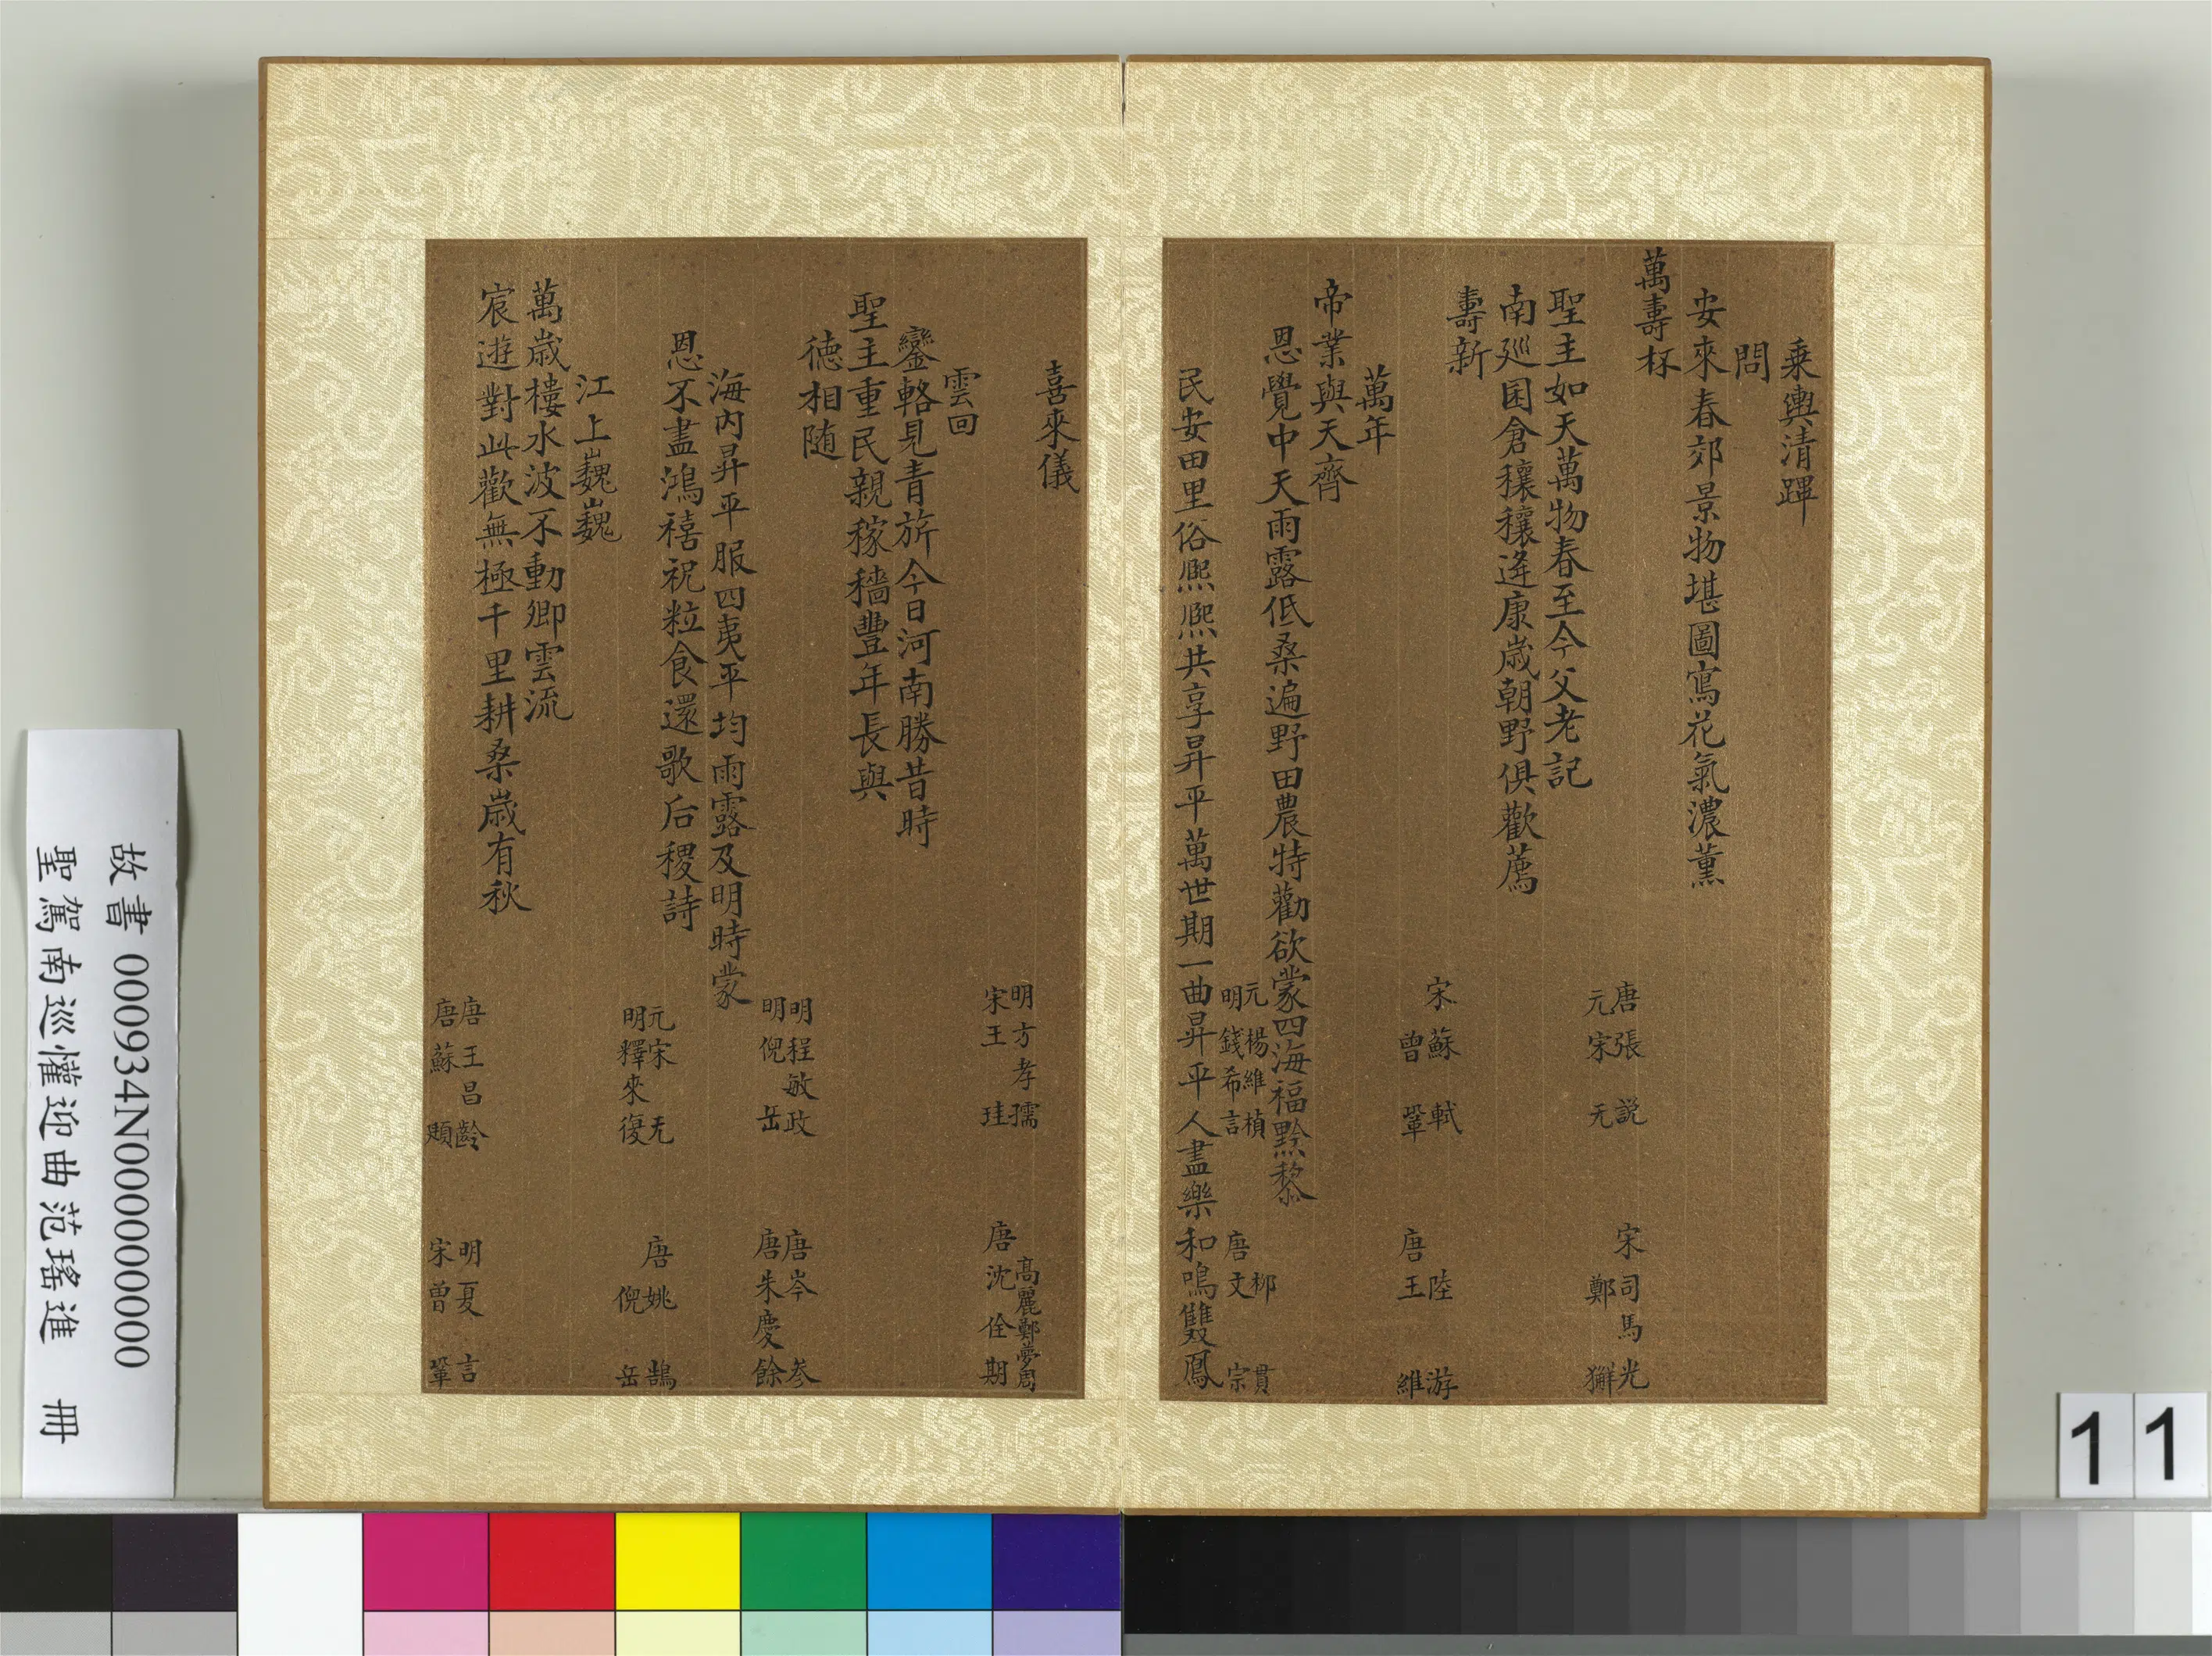 乘輿清蹕
問
安來春郊景物堪圖寫花氣濃薰
萬壽杯
唐張說 宋司馬光
元宋无 鄭獬
聖主如天萬物春至今父老記
南廵囷倉穰穰逢康歲朝野俱歡薦
壽新
宋蘇軾 陸游
曾鞏 唐王維
萬年
帝業與天齊
恩覺中天雨露低桑遍野田農特勸欲蒙四海福黔黎
元楊維楨 柳貫
明錢希言 唐文宗
民安田里俗熈熈共享昇平萬世期一曲昇平人盡樂和鳴雙鳳
喜來儀
明方孝孺 高麗鄭夢周
宋王珪 唐沈佺期
雲回
鑾輅見青旂今日河南勝昔時
聖主重民親稼穡豐年長與
德相随
明程敏政 唐岑参
明倪岳 唐朱慶餘
海内昇平服四夷平均雨露及明時蒙
恩不盡鴻禧祝粒食還歌后稷詩
元宋无 唐姚鵠
明釋來復 倪岳
江上巍巍
萬歲樓水波不動卿雲流
宸遊對此歡無極千里耕桑歲有秋
唐王昌齡 明夏言
唐蘇頲 宋曾鞏
故書 000934N000000000
聖駕南巡懽迎曲范瑤進 冊
11